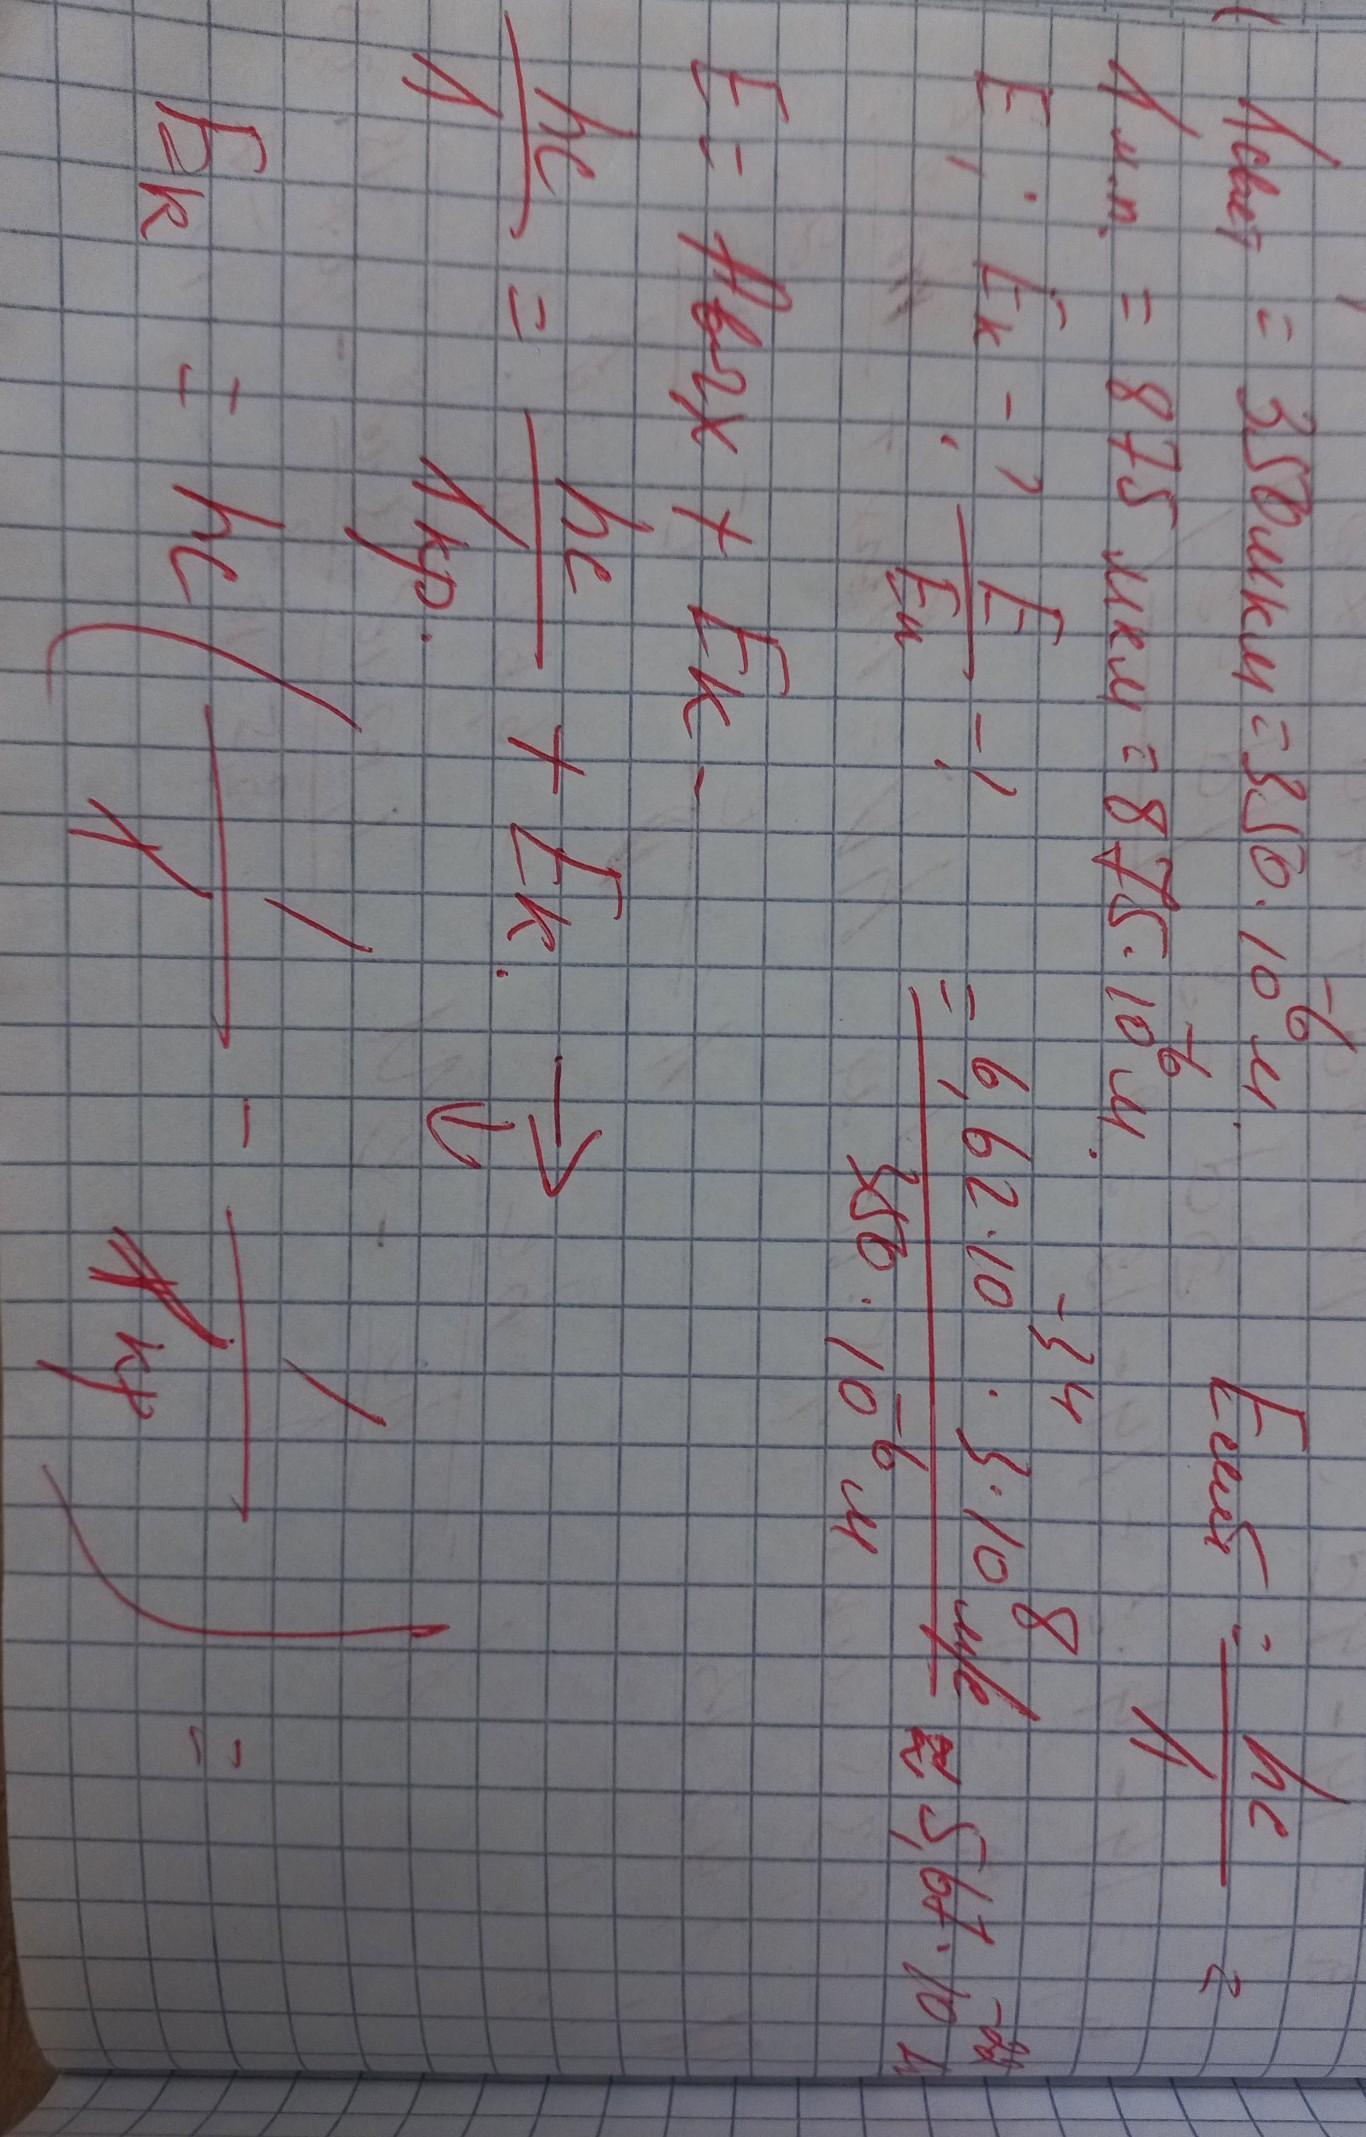 λсвет = 350 мкм = 350 · 10⁻⁶ м.
λм.п. = 875 мкм = 875 · 10⁻⁶ м.
E, : Eк - ? E/Eк - ?
E = hc/λ =
= 6,62 · 10⁻³⁴ · 3 · 10⁸ м/с / 350 · 10⁻⁶ м ≈ 5,67 · 10
E = Aвых + Eк -
hc/λ = hc/λкр. + Eк. → ⇒
Eк = hc (1/λ - 1/λкр) =